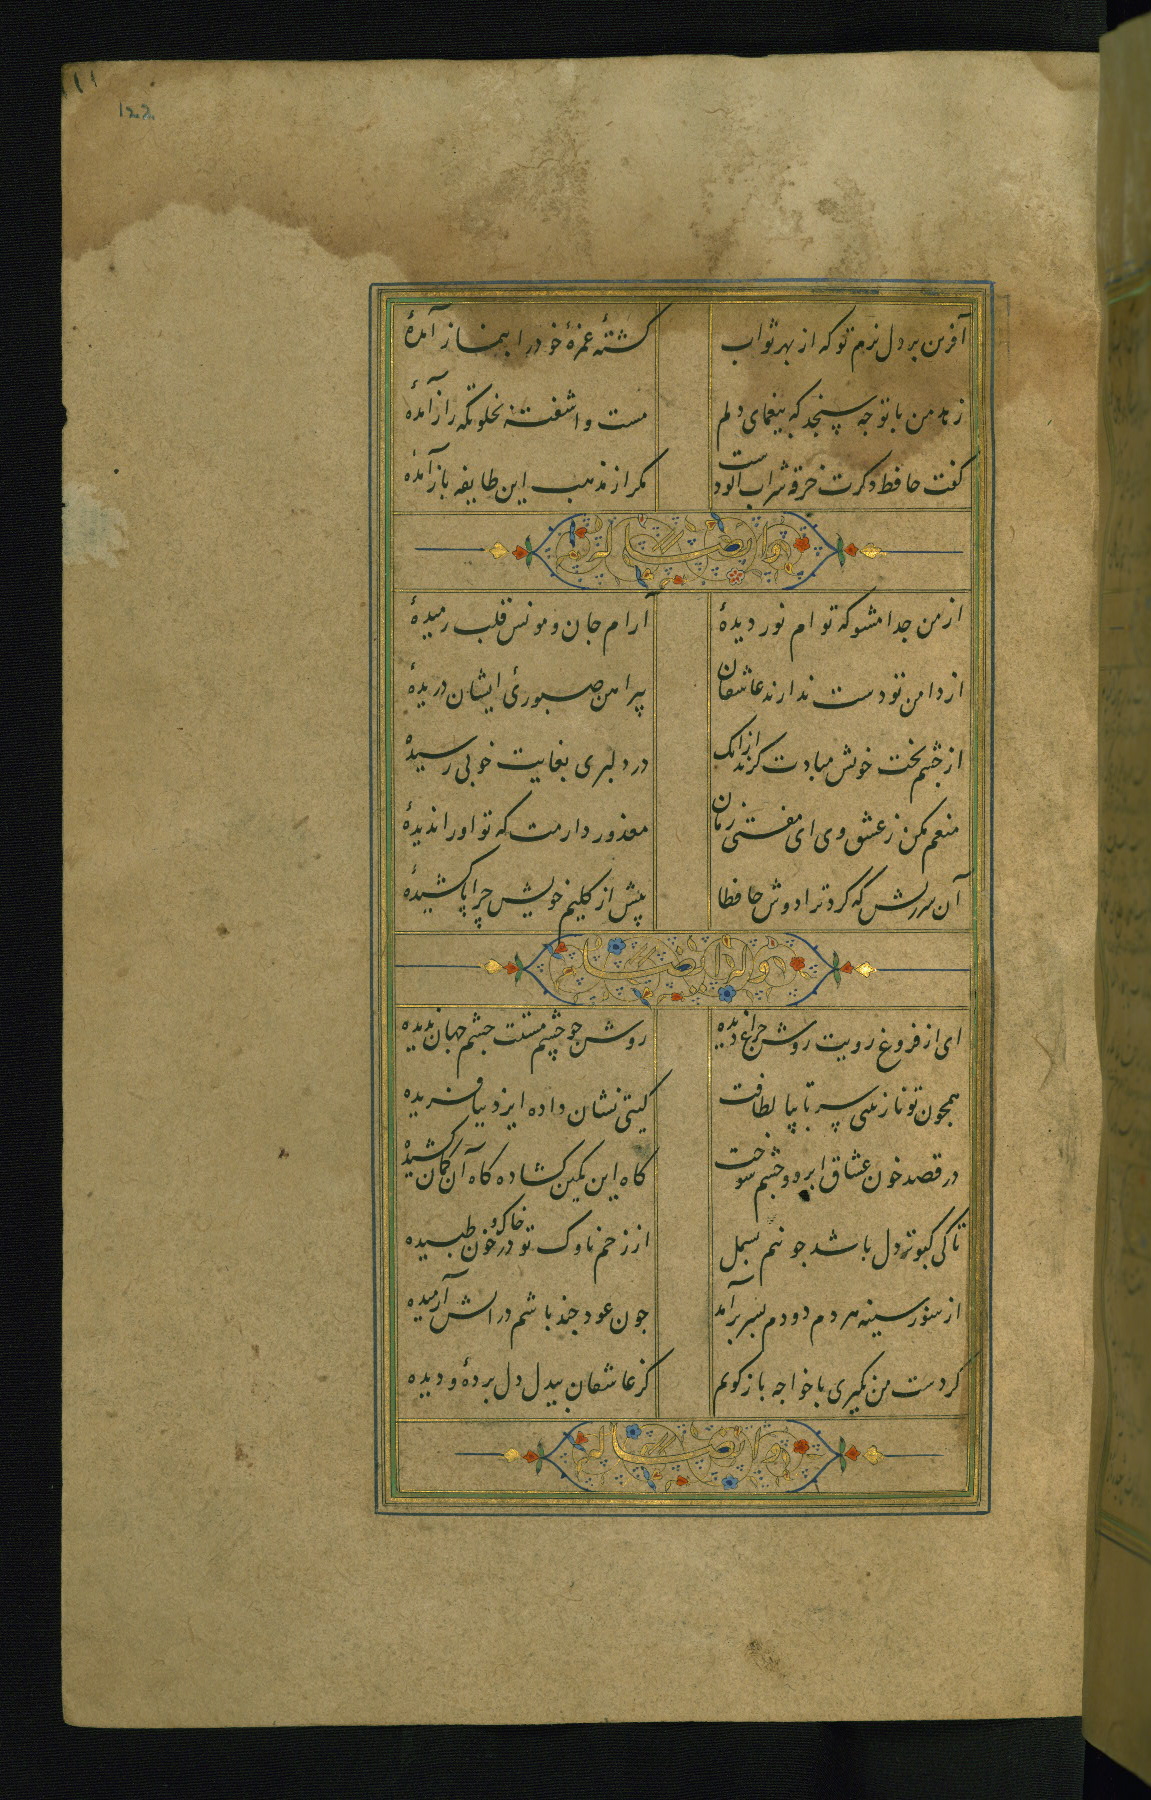 آفرین بر دل نرم تو که از بهر ثواب
کشتهٔ غمزهٔ خود را بنماز آمدهٔ
زهد من با تو چه سنجد که بیغمای دلم
مست و اشفته بخلوتگه راز آمدهٔ
گفت حافظ دگرت خرقه شراب آلودست
مگر از مذهب این طایفه باز آمدهٔ
وایضا له
از من جدا مشو که توام نور دیدهٔ
آرام جان و مونس قلب رمیدهٔ
از دامن تو دست ندارند عاشقان
پیراهن صبوری ایشان دریدهٔ
از چشم بخت خوش مبادت گزند از انک
در دلبری بغایت خوبی رسیدهٔ
منعم مکن ز عشق وی ای مفتی زمان
معذور دارمت که تو اورا ندیدهٔ
آن سرزنش که کرد ترا دوش حافظا
پیش از گلیم خویش چرا پا کشیدهٔ
وله ایضا
ای از فروغ رویت روشن چراغ دیده
روشن چو چشم مستت چشم جهان ندیده
همچون تو نازنینی سر تا بپا لطافت
گیتی نشان نداده ایزد نیافریده
در قصد خون عشاق ابرو و چشم شوخت
گاه این کمین گشاده گاه آن کمان کشیده
تا کی کبوتر دل باشد چو نیم بسمل
از زخم ناوک تو در خاک و خون طپیده
از سوز سینه هر دم دودم بسر بر آمد
چون عود چند باشم در آتش آرمیده
گر دست من نگیری با خواجه باز گویم
کز عاشقان بیدل دل بردهٔ و دیده
وایضا له